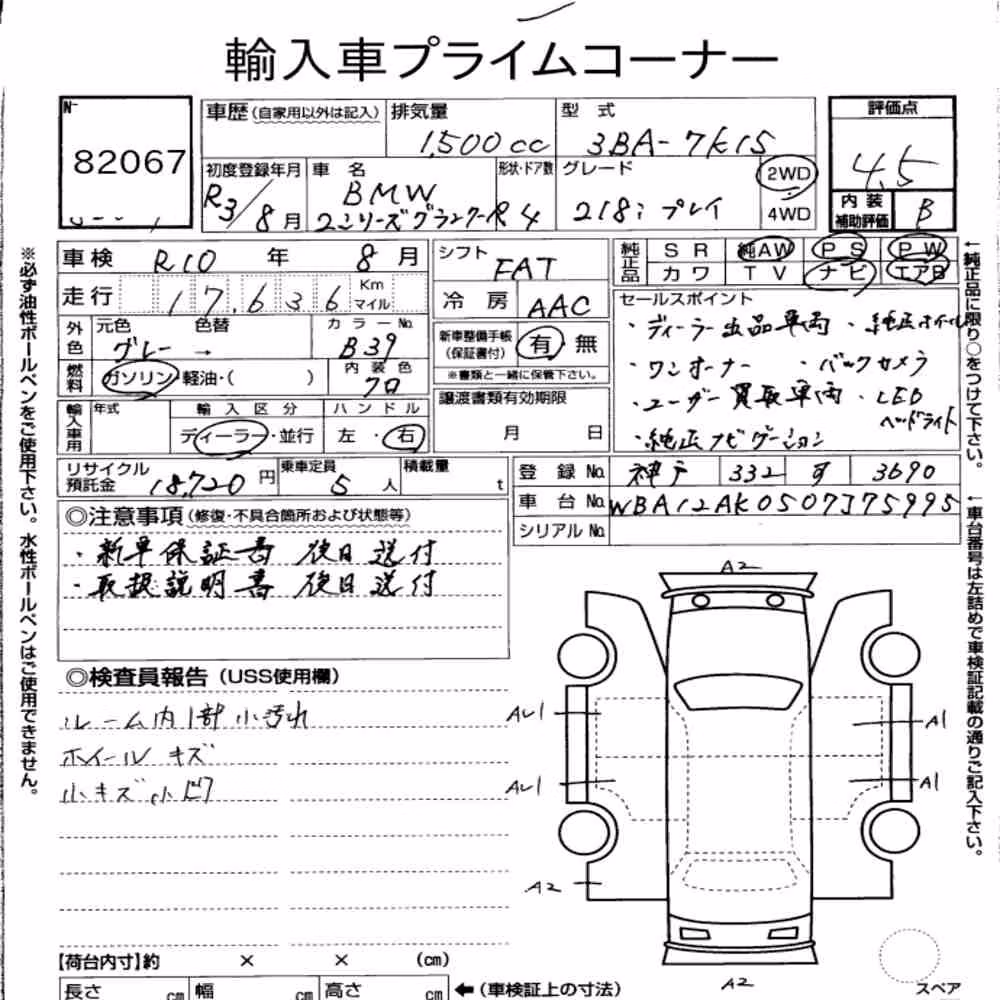 輸入車プライムコーナー
№
82067
車歴 (自家用以外は記入) 排気量 1,500cc
型式 3BA-7K15
評価点 4.5
初度登録年月 R3/8月
車名 BMW 2シリーズグランクー
形状・ドア数 R4
グレード 218i プレイ
2WD
4WD
内装補助評価 B
車検 R10年 8月
シフト FAT
純正品 SR 純AW PS PW
カワ TV ナビ エアB
走行 17,636 Km マイル
冷房 AAC
セールスポイント
・ディーラー出品車両 ・純正ホイール
・ワンオーナー ・バックカメラ
・ユーザー買取車両 ・LEDヘッドライト
・純正ナビゲーション
外色 元色 グレー → 色替 カラーNo. B39
新車整備手帳(保証書付) 有 無
※書類と一緒に保管下さい。
燃料 ガソリン・軽油・( ) 内装色 クロ
譲渡書類有効期限 月 日
輸入車用 年式 輸入区分 ディーラー・並行 ハンドル 左・右
リサイクル預託金 18,720円 乗車定員 5人 積載量 t
登録No. 神戸 332 す 3690
車台No. WBA12AK0507J75995
シリアルNo.
◎注意事項(修復・不具合箇所および状態等)
・新車保証書 後日送付
・取扱説明書 後日送付
◎検査員報告(USS使用欄)
ルーム内1部小汚れ
ホイールキズ
小キズ小凹
A2
AU1
A1
AU1
A1
A2
A2
スペア
【荷台内寸】約 × × (cm)
長さ cm 幅 cm 高さ cm ←(車検証上の寸法)
※必ず油性ボールペンをご使用下さい。水性ボールペンはご使用できません。
←純正品に限り○をつけて下さい。
←車台番号は左詰めで車検証記載の通りご記入下さい。